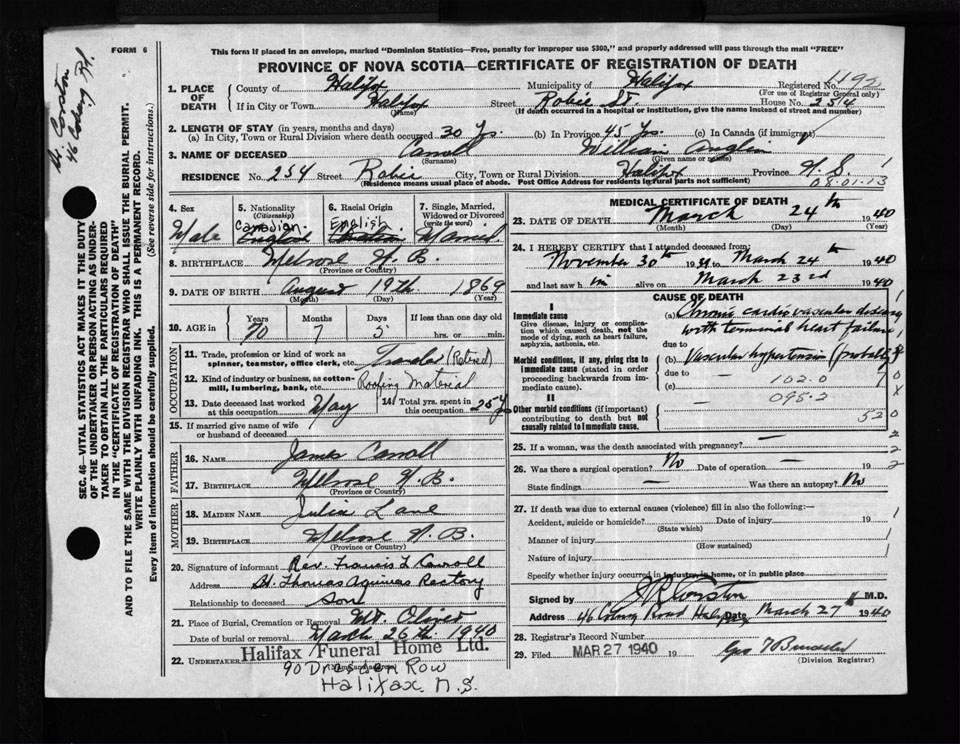 FORM 6
This form if placed in an envelope, marked "Dominion Statistics—Free, penalty for improper use $300," and properly addressed will pass through the mail "FREE"
PROVINCE OF NOVA SCOTIA—CERTIFICATE OF REGISTRATION OF DEATH
Registered No. 1192
(For use of Registrar General only)
1. PLACE OF DEATH
County of Halifax Municipality of Halifax
If in City or Town Halifax Street Robie St. House No. 254
(Name) (If death occurred in a hospital or institution, give the name instead of street and number)
2. LENGTH OF STAY (in years, months and days)
(a) In City, Town or Rural Division where death occurred 30 Yrs. (b) In Province 45 Yrs. (c) In Canada (if immigrant)
3. NAME OF DECEASED Carroll William Anglin
(Surname) (Given name or names)
RESIDENCE No. 254 Street Robie City, Town or Rural Division Halifax Province N.S.
(Residence means usual place of abode. Post Office Address for residents in rural parts not sufficient)
08.01.13
4. Sex Male
5. Nationality (Citizenship) Canadian
6. Racial Origin English
7. Single, Married, Widowed or Divorced (write the word) Married
8. BIRTHPLACE Melrose N.B.
(Province or Country)
9. DATE OF BIRTH August 19th 1869
(Month) (Day) (Year)
10. AGE in Years Months Days If less than one day
70 7 5 hrs. or min.
OCCUPATION
11. Trade, profession or kind of work as spinner, teamster, office clerk, etc. (Retired)
12. Kind of industry or business, as cotton-mill, lumbering, bank, etc. Roofing Material
13. Date deceased last worked at this occupation May
14. Total yrs. spent in this occupation 25 y
15. If married give name of wife or husband of deceased
FATHER
16. NAME James Carroll
17. BIRTHPLACE Melrose N.B.
(Province or Country)
MOTHER
18. MAIDEN NAME Julia Lane
19. BIRTHPLACE Melrose N.B.
(Province or Country)
20. Signature of informant Rev. Francis L Carroll
Address St. Thomas Aquinas Rectory
Relationship to deceased Son
21. Place of Burial, Cremation or Removal Mt. Olivet
Date of burial or removal March 26th. 1940
22. UNDERTAKER Halifax Funeral Home Ltd.
(Name and address)
90 Dresden Row
Halifax N.S.
MEDICAL CERTIFICATE OF DEATH
23. DATE OF DEATH March 24th 1940
(Month) (Day) (Year)
24. I HEREBY CERTIFY that I attended deceased from:
November 30th 1939 to March 24th 1940
and last saw him alive on March 23rd 1940
CAUSE OF DEATH
I
Immediate cause
Give disease, injury or complication which caused death, not the mode of dying, such as heart failure, asphyxia, asthenia, etc.
(a) Chronic cardio vascular disease with terminal heart failure
due to
Morbid conditions, if any, giving rise to immediate cause (stated in order proceeding backwards from immediate cause).
(b) Vascular hypertension (probably)
due to
(c) —
102.0
095.2
II
Other morbid conditions (if important) contributing to death but not causally related to immediate cause.
520
25. If a woman, was the death associated with pregnancy? —
26. Was there a surgical operation? No Date of operation — 19
State findings — Was there an autopsy? No
27. If death was due to external causes (violence) fill in also the following:—
Accident, suicide or homicide? Date of injury 19
(State which)
Manner of injury
(How sustained)
Nature of injury
Specify whether injury occurred in industry, in home, or in public place
Signed by M.D.
Address 46 Coburg Road Halifax Date March 27 1940
28. Registrar's Record Number
29. Filed MAR 27 1940 19
(Division Registrar)
46 Coburg Rd.
SEC. 46—VITAL STATISTICS ACT MAKES IT THE DUTY OF THE UNDERTAKER OR PERSON ACTING AS UNDERTAKER TO OBTAIN ALL THE PARTICULARS REQUIRED IN THE "CERTIFICATE OF REGISTRATION OF DEATH"
AND TO FILE THE SAME WITH THE DIVISION REGISTRAR WHO SHALL ISSUE THE BURIAL PERMIT.
WRITE PLAINLY WITH UNFADING INK. THIS IS A PERMANENT RECORD.
Every item of information should be carefully supplied. (See reverse side for instructions.)